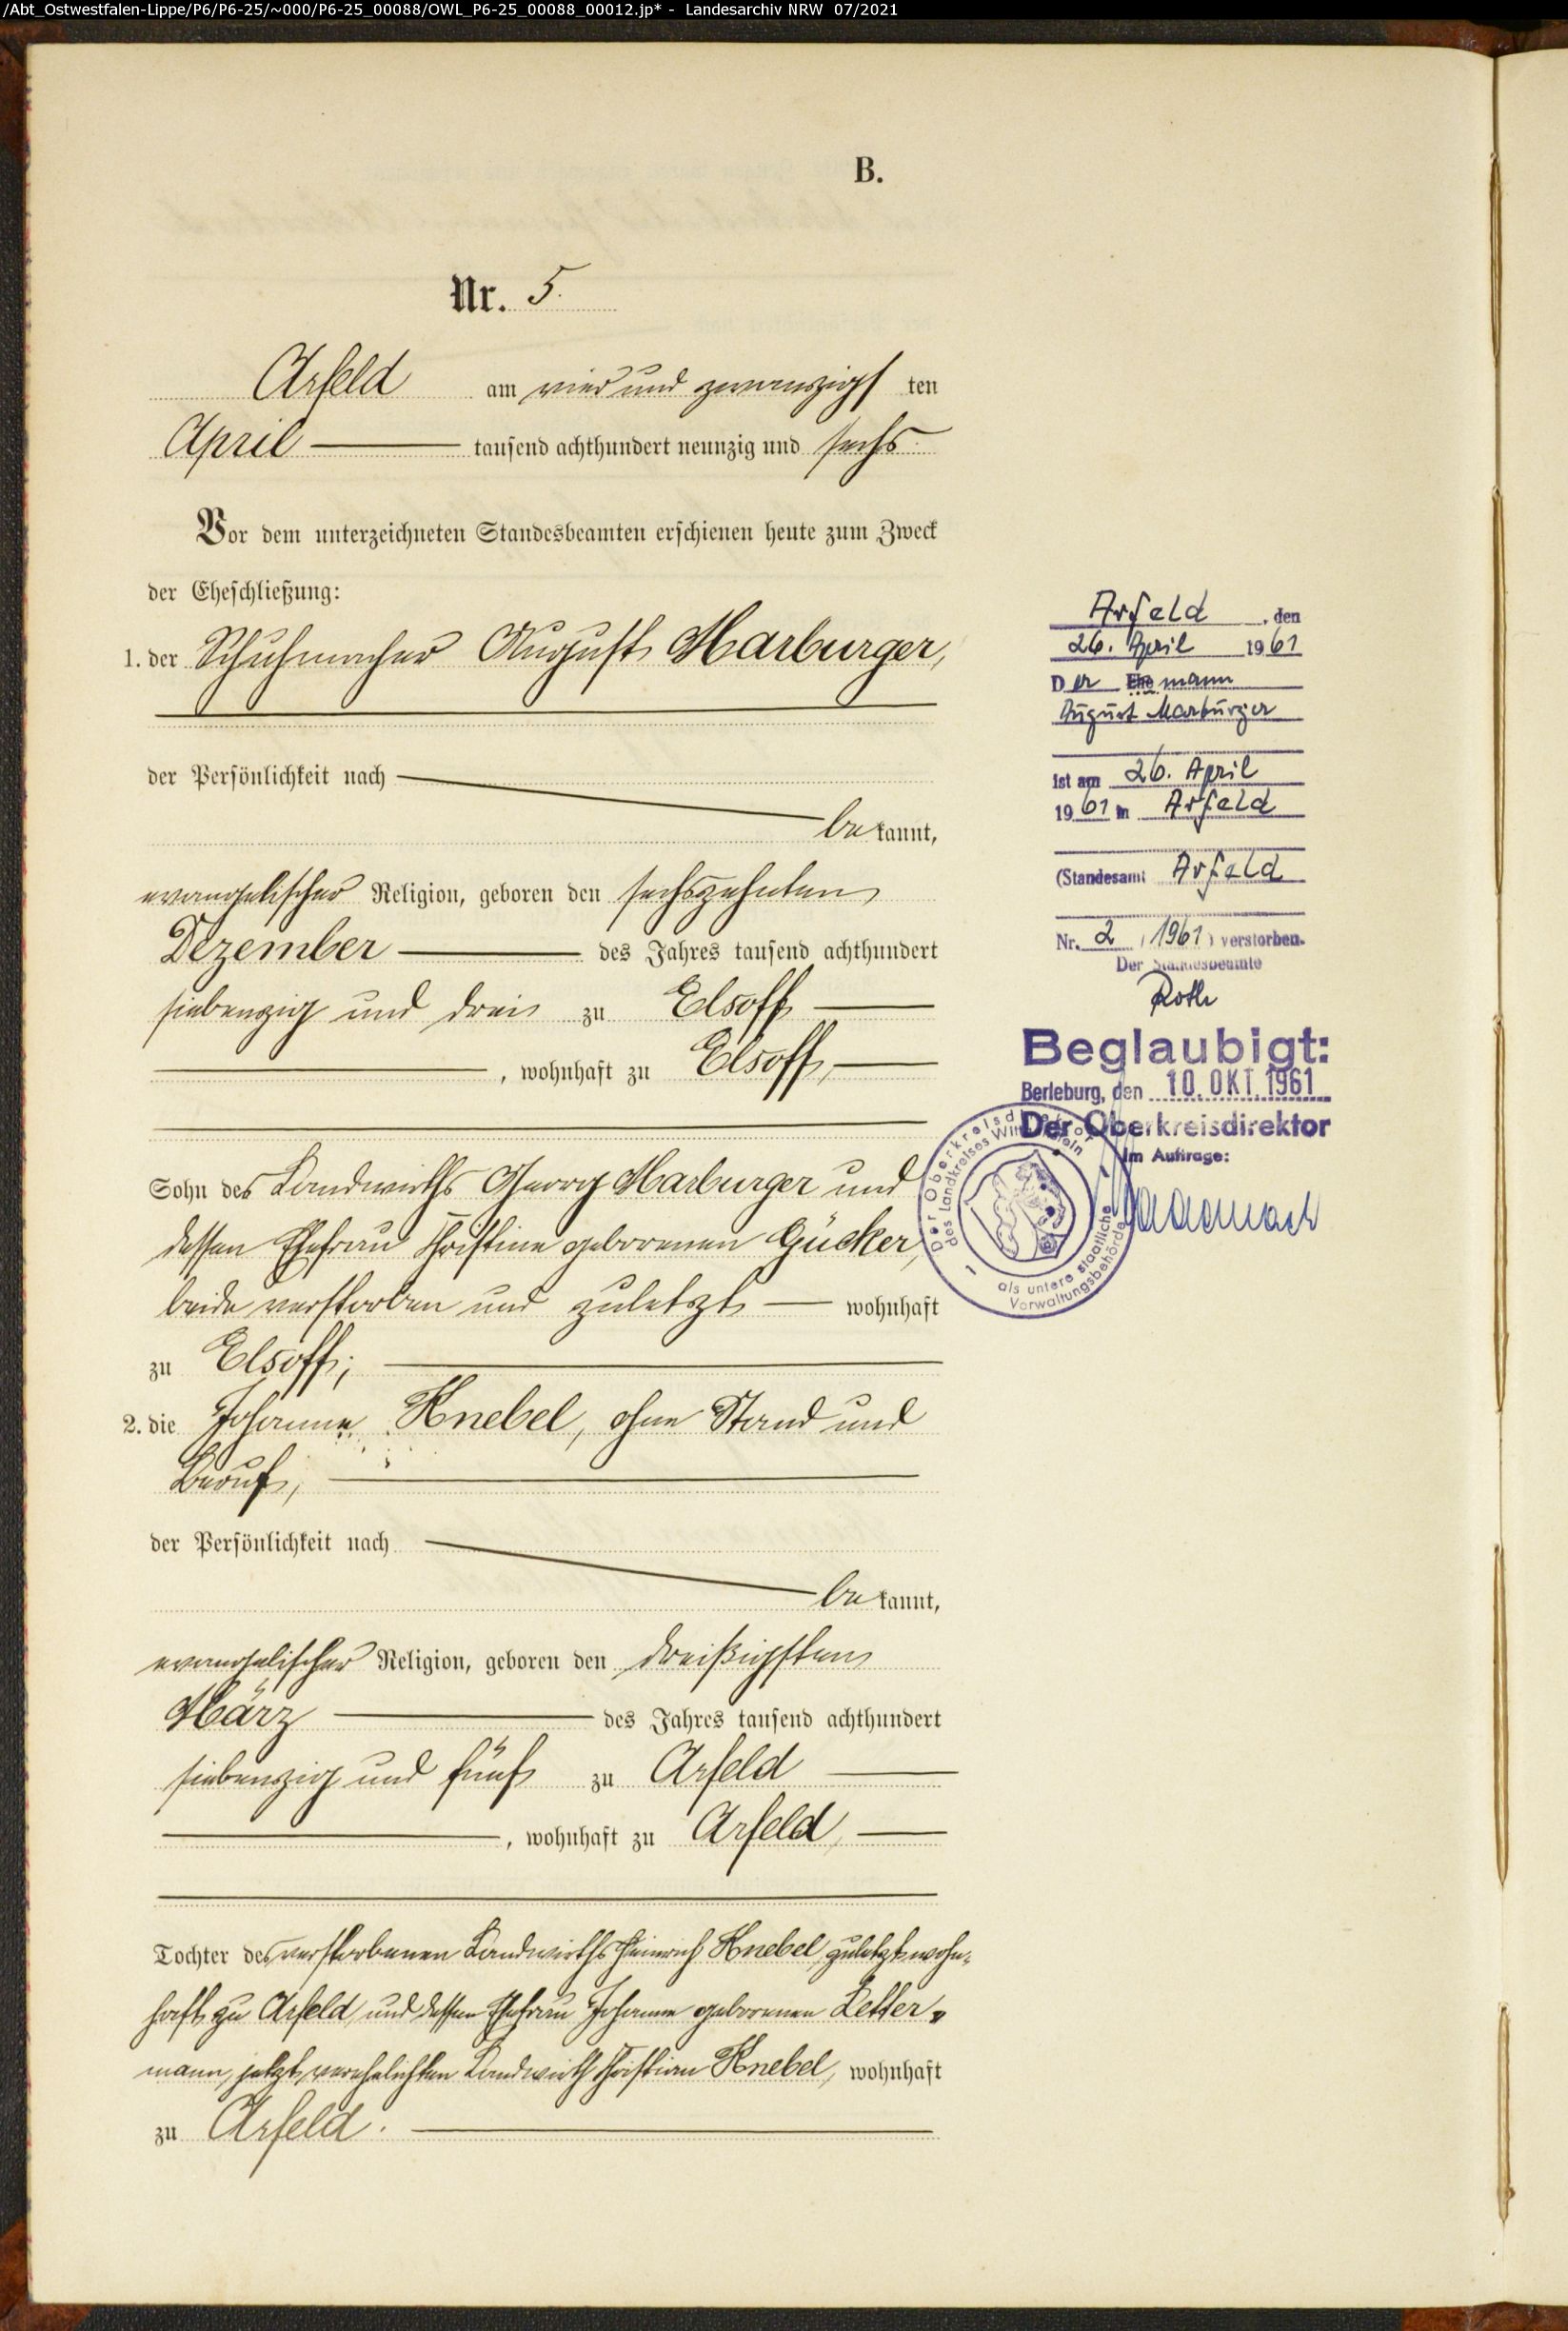 /Abt_Ostwestfalen-Lippe/P6/P6-25/~000/P6-25_00088/OWL_P6-25_00088_00012.jp* - Landesarchiv NRW 07/2021
B.
Nr. 5.
Arfeld am vier und zwanzigs ten
April tausend achthundert neunzig und sechs
Vor dem unterzeichneten Standesbeamten erschienen heute zum Zweck
der Eheschließung:
1. der Schuhmacher August Marburger,
der Persönlichkeit nach
be kannt,
evangelischer Religion, geboren den sechszehnten
Dezember des Jahres tausend achthundert
siebenzig und drei zu Elsoff
, wohnhaft zu Elsoff,
Sohn des Landwirths Georg Marburger und
dessen Ehefrau Christine geborenen Gücker,
beide verstorben und zuletzt wohnhaft
zu Elsoff;
2. die Johanne Knebel, ohne Stand und
Beruf,
der Persönlichkeit nach
be kannt,
evangelischer Religion, geboren den dreißigsten
März des Jahres tausend achthundert
siebenzig und fünf zu Arfeld
, wohnhaft zu Arfeld,
Tochter des verstorbenen Landwirths Heinrich Knebel, zuletzt wohn-
haft zu Arfeld, und dessen Ehefrau Johanne geborenen Letter-
mann, jetzt verehelichten Landwirth Christian Knebel, wohnhaft
zu Arfeld.
Arfeld, den
26. April 1961
Der Ehemann
August Marburger
ist am 26. April
1961 in Arfeld
(Standesamt Arfeld
Nr. 2 / 1961) verstorben.
Der Standesbeamte
Roth
Beglaubigt:
Berleburg, den 10. OKT. 1961
Der Oberkreisdirektor
Im Auftrage:
Der Oberkreisdirektor
des Landkreises Wittgenstein
als untere staatliche
Verwaltungsbehörde
1